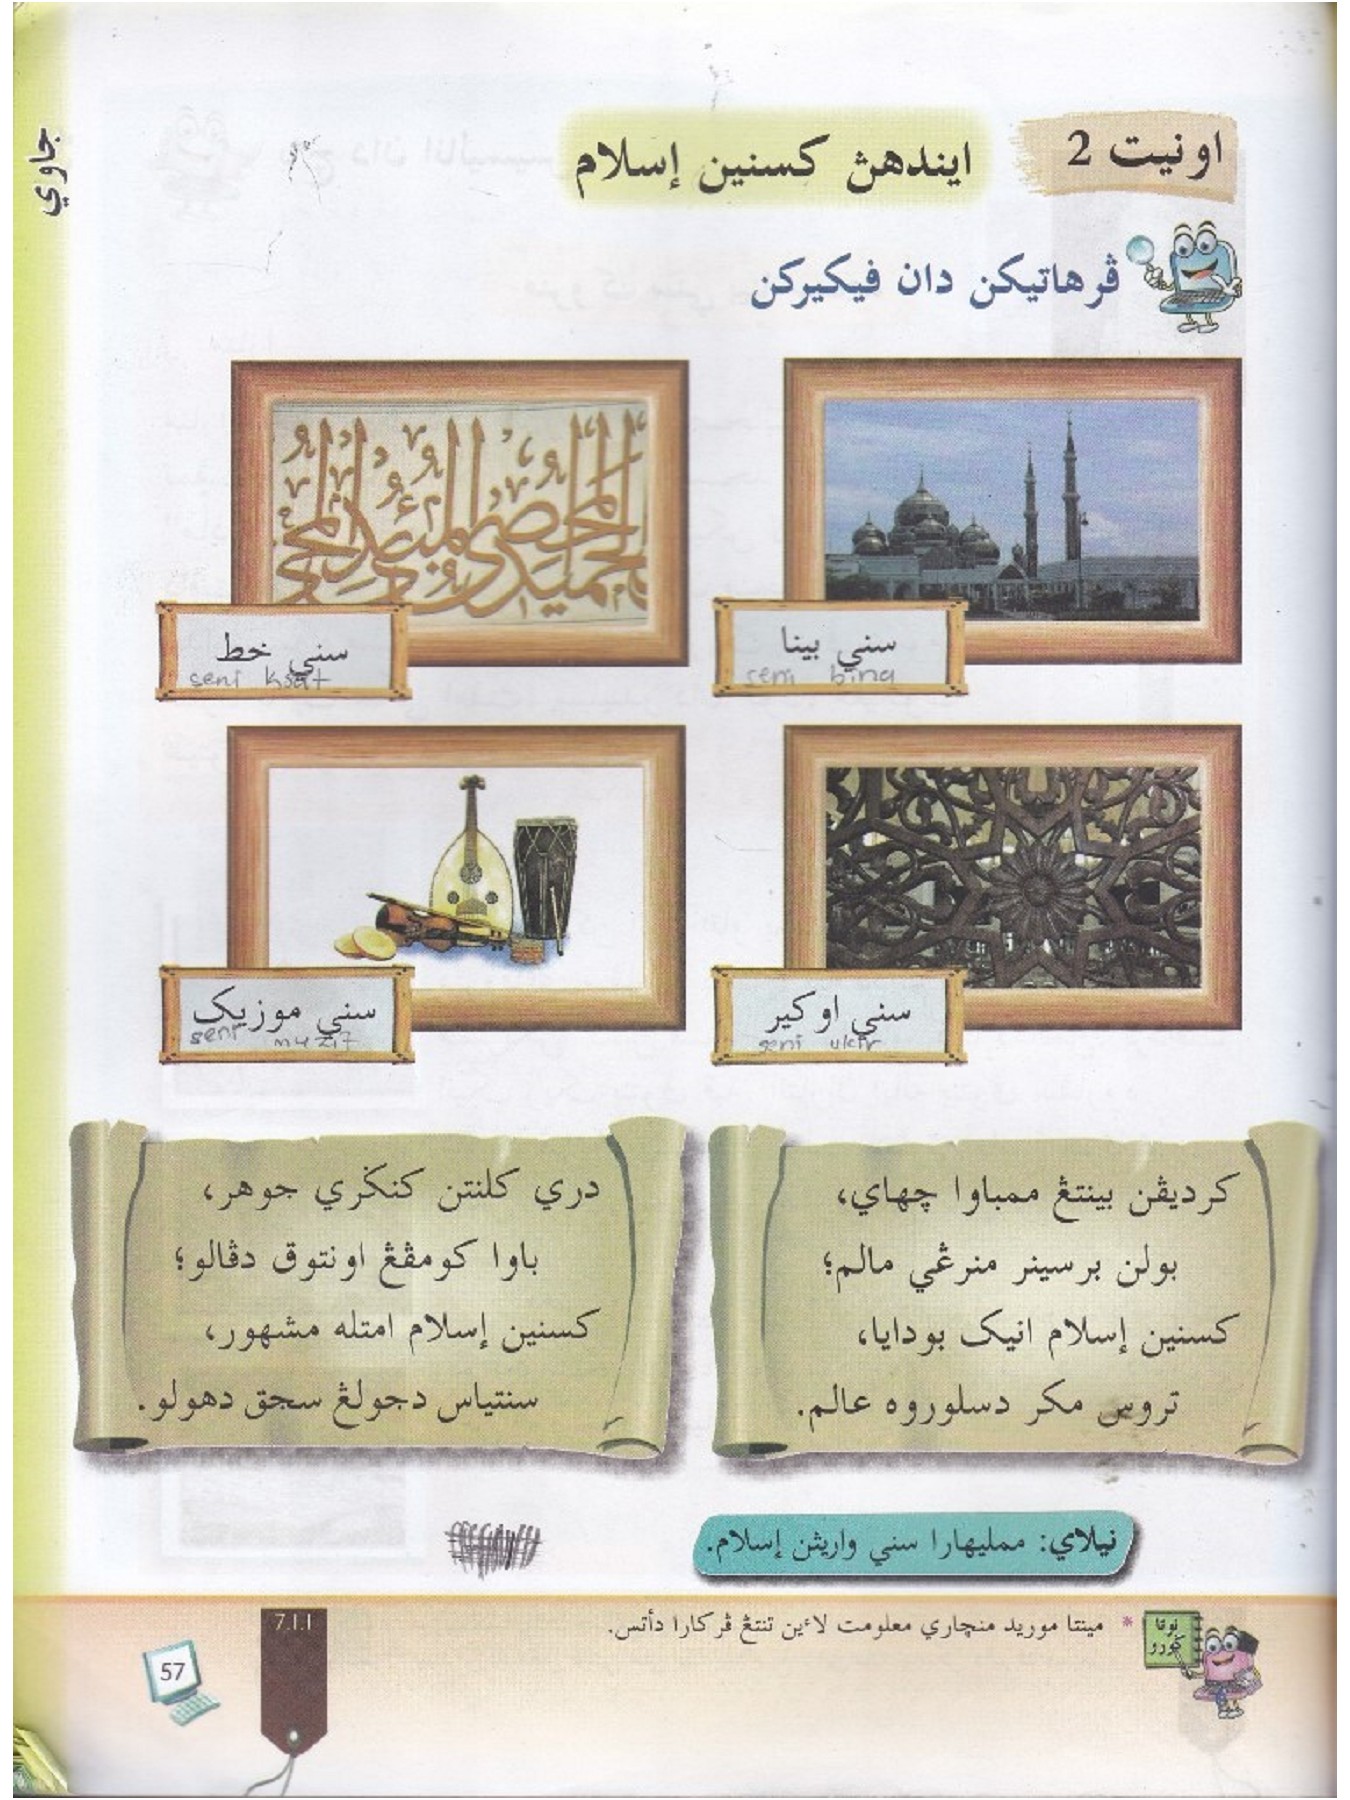 جاوي
اونيت 2
ايندهڽ كسنين إسلام
ڤرهاتيكن دان فيكيركن
سني بينا
seni bina
سني خط
seni
سني اوكير
seni ukir
سني موزيک
seni
كرديڤن بينتڠ ممباوا چهاي،
بولن برسينر منرڠي مالم؛
كسنين إسلام انيک بودايا،
تروس مكر دسلوروه عالم.
دري كلنتن كنݢري جوهر،
باوا كومڤڠ اونتوق دڤالو؛
كسنين إسلام امتله مشهور،
سنتياس دجولڠ سجق دهولو.
نيلاي: ممليهارا سني واريثن إسلام.
نوتا
ݢورو
* مينتا موريد منچاري معلومت لاءين تنتڠ ڤركارا دأتس.
7.1.1
57